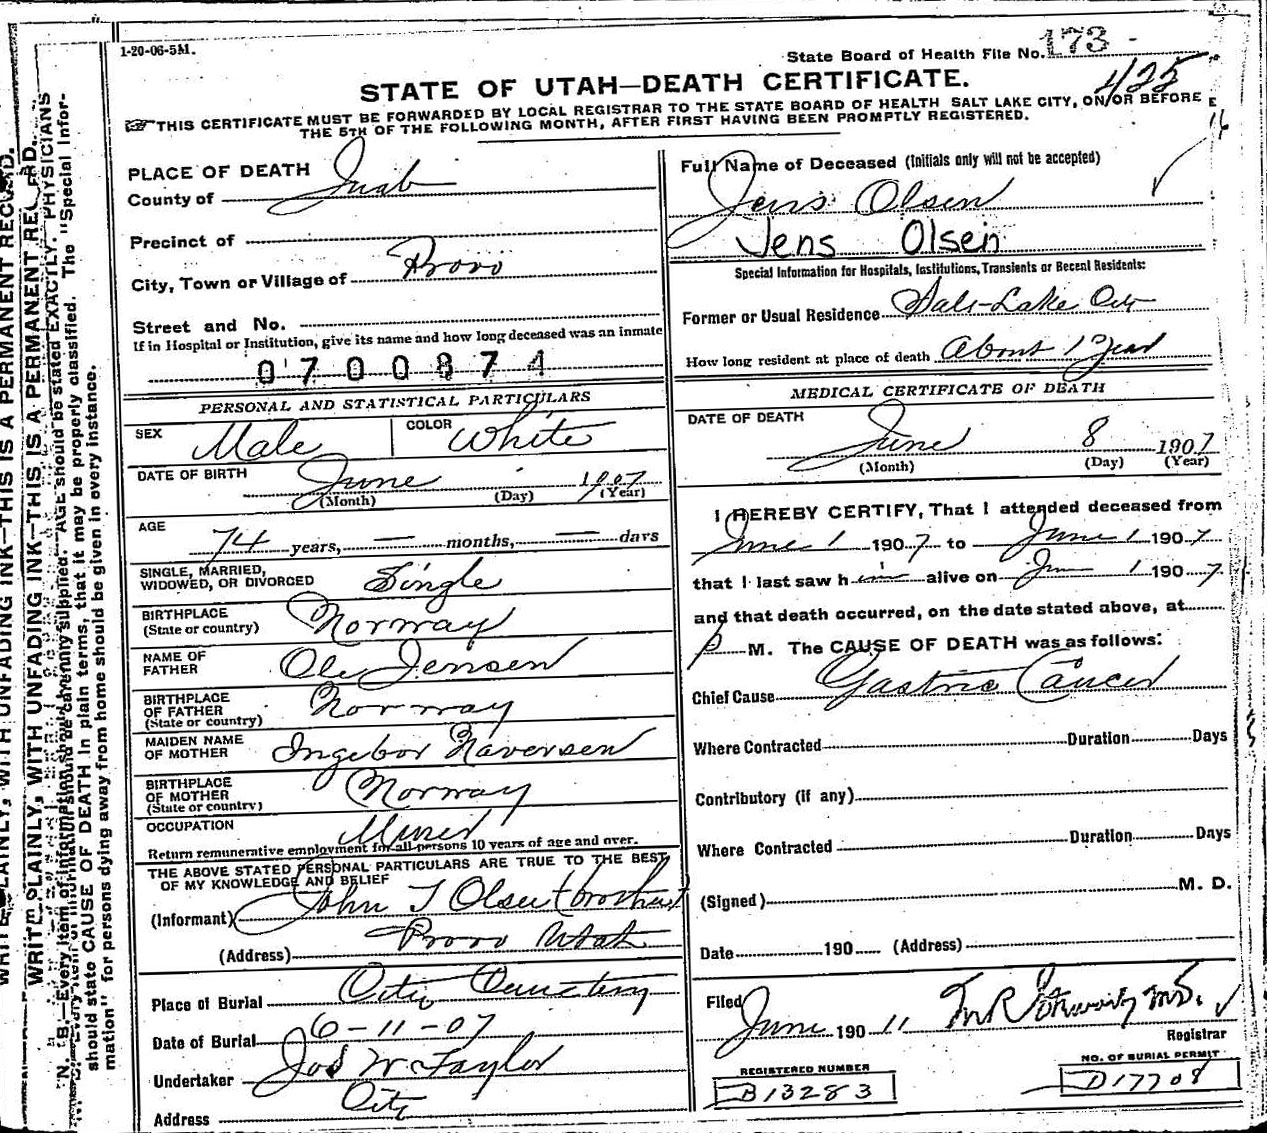 1-20-06-5M.
State Board of Health File No. 173
425
STATE OF UTAH—DEATH CERTIFICATE.
THIS CERTIFICATE MUST BE FORWARDED BY LOCAL REGISTRAR TO THE STATE BOARD OF HEALTH SALT LAKE CITY, ON OR BEFORE
THE 5TH OF THE FOLLOWING MONTH, AFTER FIRST HAVING BEEN PROMPTLY REGISTERED.
16
PLACE OF DEATH
County of Juab
Precinct of
City, Town or Village of Provo
Street and No.
If in Hospital or Institution, give its name and how long deceased was an inmate
0700874
PERSONAL AND STATISTICAL PARTICULARS
SEX Male COLOR White
DATE OF BIRTH June 1907
(Month) (Day) (Year)
AGE
74 years, — months, — days
SINGLE, MARRIED,
WIDOWED, OR DIVORCED Single
BIRTHPLACE
(State or country) Norway
NAME OF
FATHER Ole Jensen
BIRTHPLACE
OF FATHER
(State or country) Norway
MAIDEN NAME
OF MOTHER Ingebor Haversen
BIRTHPLACE
OF MOTHER
(State or country) Norway
OCCUPATION Miner
Return remunerative employment for all persons 10 years of age and over.
THE ABOVE STATED PERSONAL PARTICULARS ARE TRUE TO THE BEST
OF MY KNOWLEDGE AND BELIEF
(Informant) John T Olsen (brother)
(Address) Provo Utah
Place of Burial City Cemetery
Date of Burial 6-11-07
Undertaker Jos W Taylor
Address City
Full Name of Deceased (Initials only will not be accepted)
Jens Olsen
Jens Olsen
Special Information for Hospitals, Institutions, Transients or Recent Residents:
Former or Usual Residence Salt Lake City
How long resident at place of death About 1 Year
MEDICAL CERTIFICATE OF DEATH
DATE OF DEATH
June 8 1907
(Month) (Day) (Year)
I HEREBY CERTIFY, That I attended deceased from
June 1 1907 to June 1 1907
that I last saw him alive on June 1 1907
and that death occurred, on the date stated above, at
P M. The CAUSE OF DEATH was as follows:
Chief Cause Gastric Cancer
Where Contracted Duration Days
Contributory (if any)
Where Contracted Duration Days
(Signed) M. D.
Date 190 (Address)
Filed
June 190 11
Registrar
REGISTERED NUMBER
B13283
NO. OF BURIAL PERMIT
D17708
WRITE PLAINLY, WITH UNFADING INK—THIS IS A PERMANENT RECORD.
N. B.—Every item of information should be carefully supplied. AGE should be stated EXACTLY. PHYSICIANS
should state CAUSE OF DEATH in plain terms, that it may be properly classified. The "Special Infor-
mation" for persons dying away from home should be given in every instance.